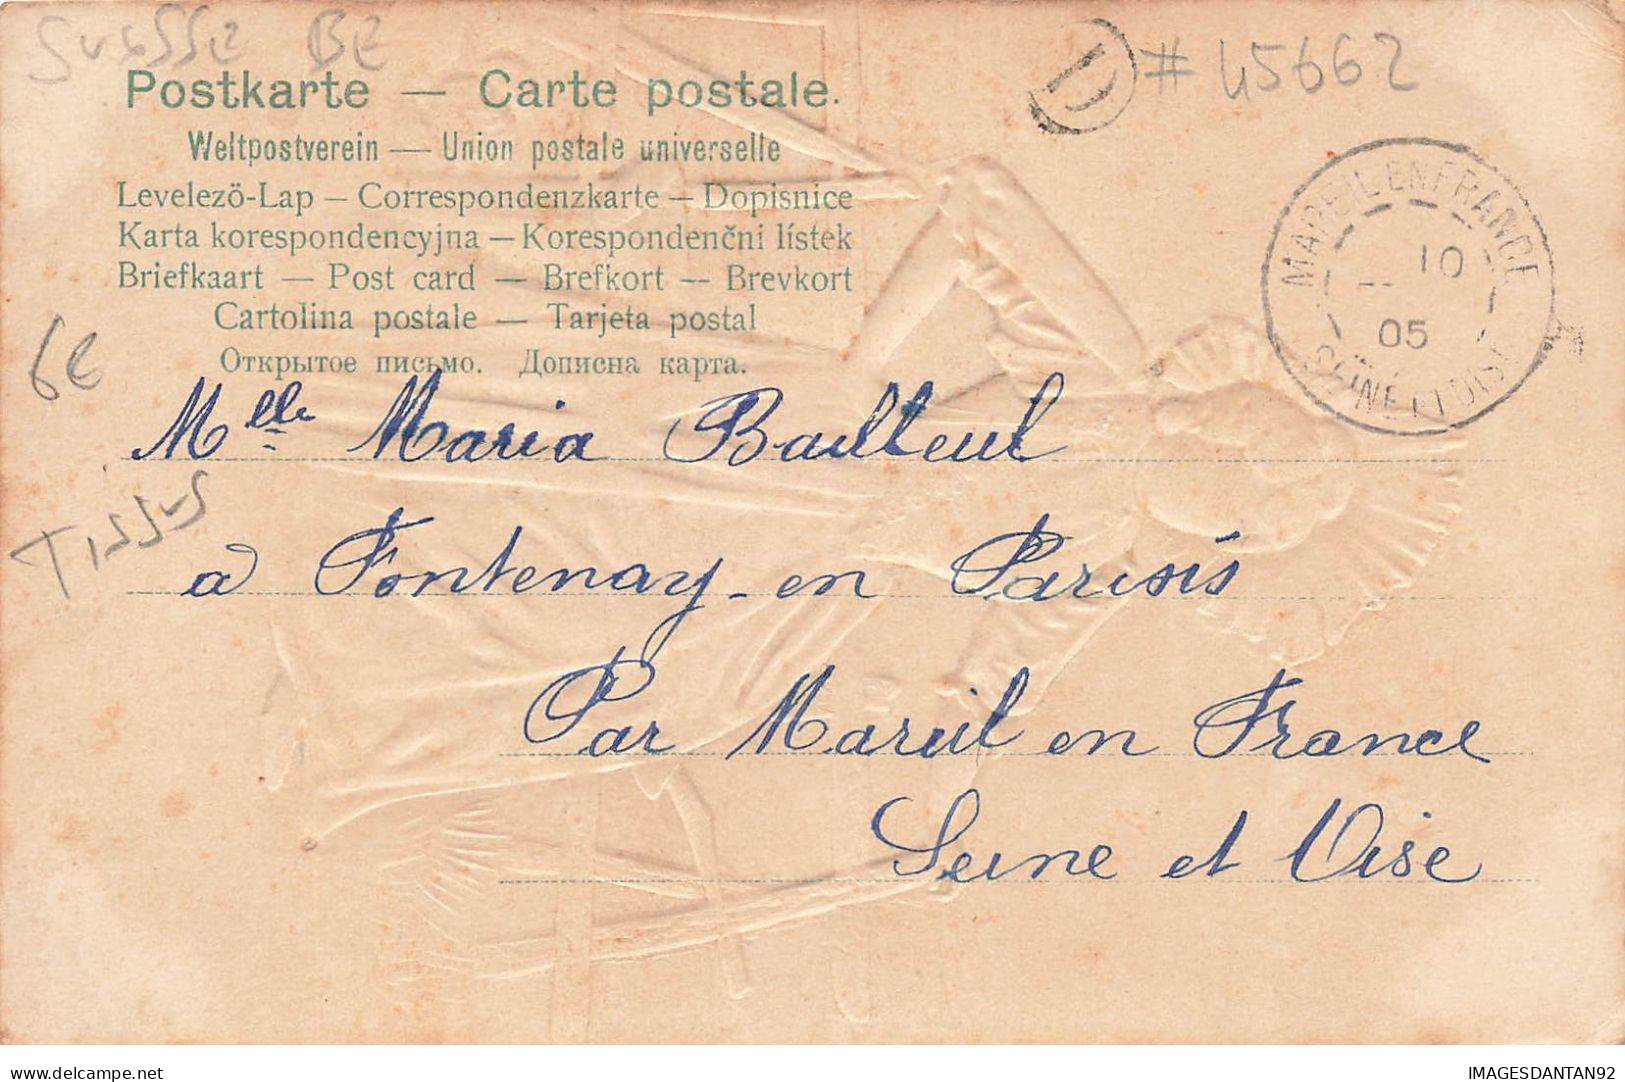 SUISSE BE
# 45662
D
Postkarte — Carte postale.
Weltpostverein — Union postale universelle
Levelező-Lap — Correspondenzkarte — Dopisnice
Karta korespondencyjna — Korespondenčni lístek
Briefkaart — Post card — Brefkort — Brevkort
Cartolina postale — Tarjeta postal
Открытое письмо. Дописна карта.
MAREUIL EN FRANCE
10
05
SEINE ET OISE
6€
Melle Maria Bailleul
TISSUS
a Fontenay-en Parisis
Par Mareil en France
Seine et Oise
delcampe.net
IMAGESDANTAN92